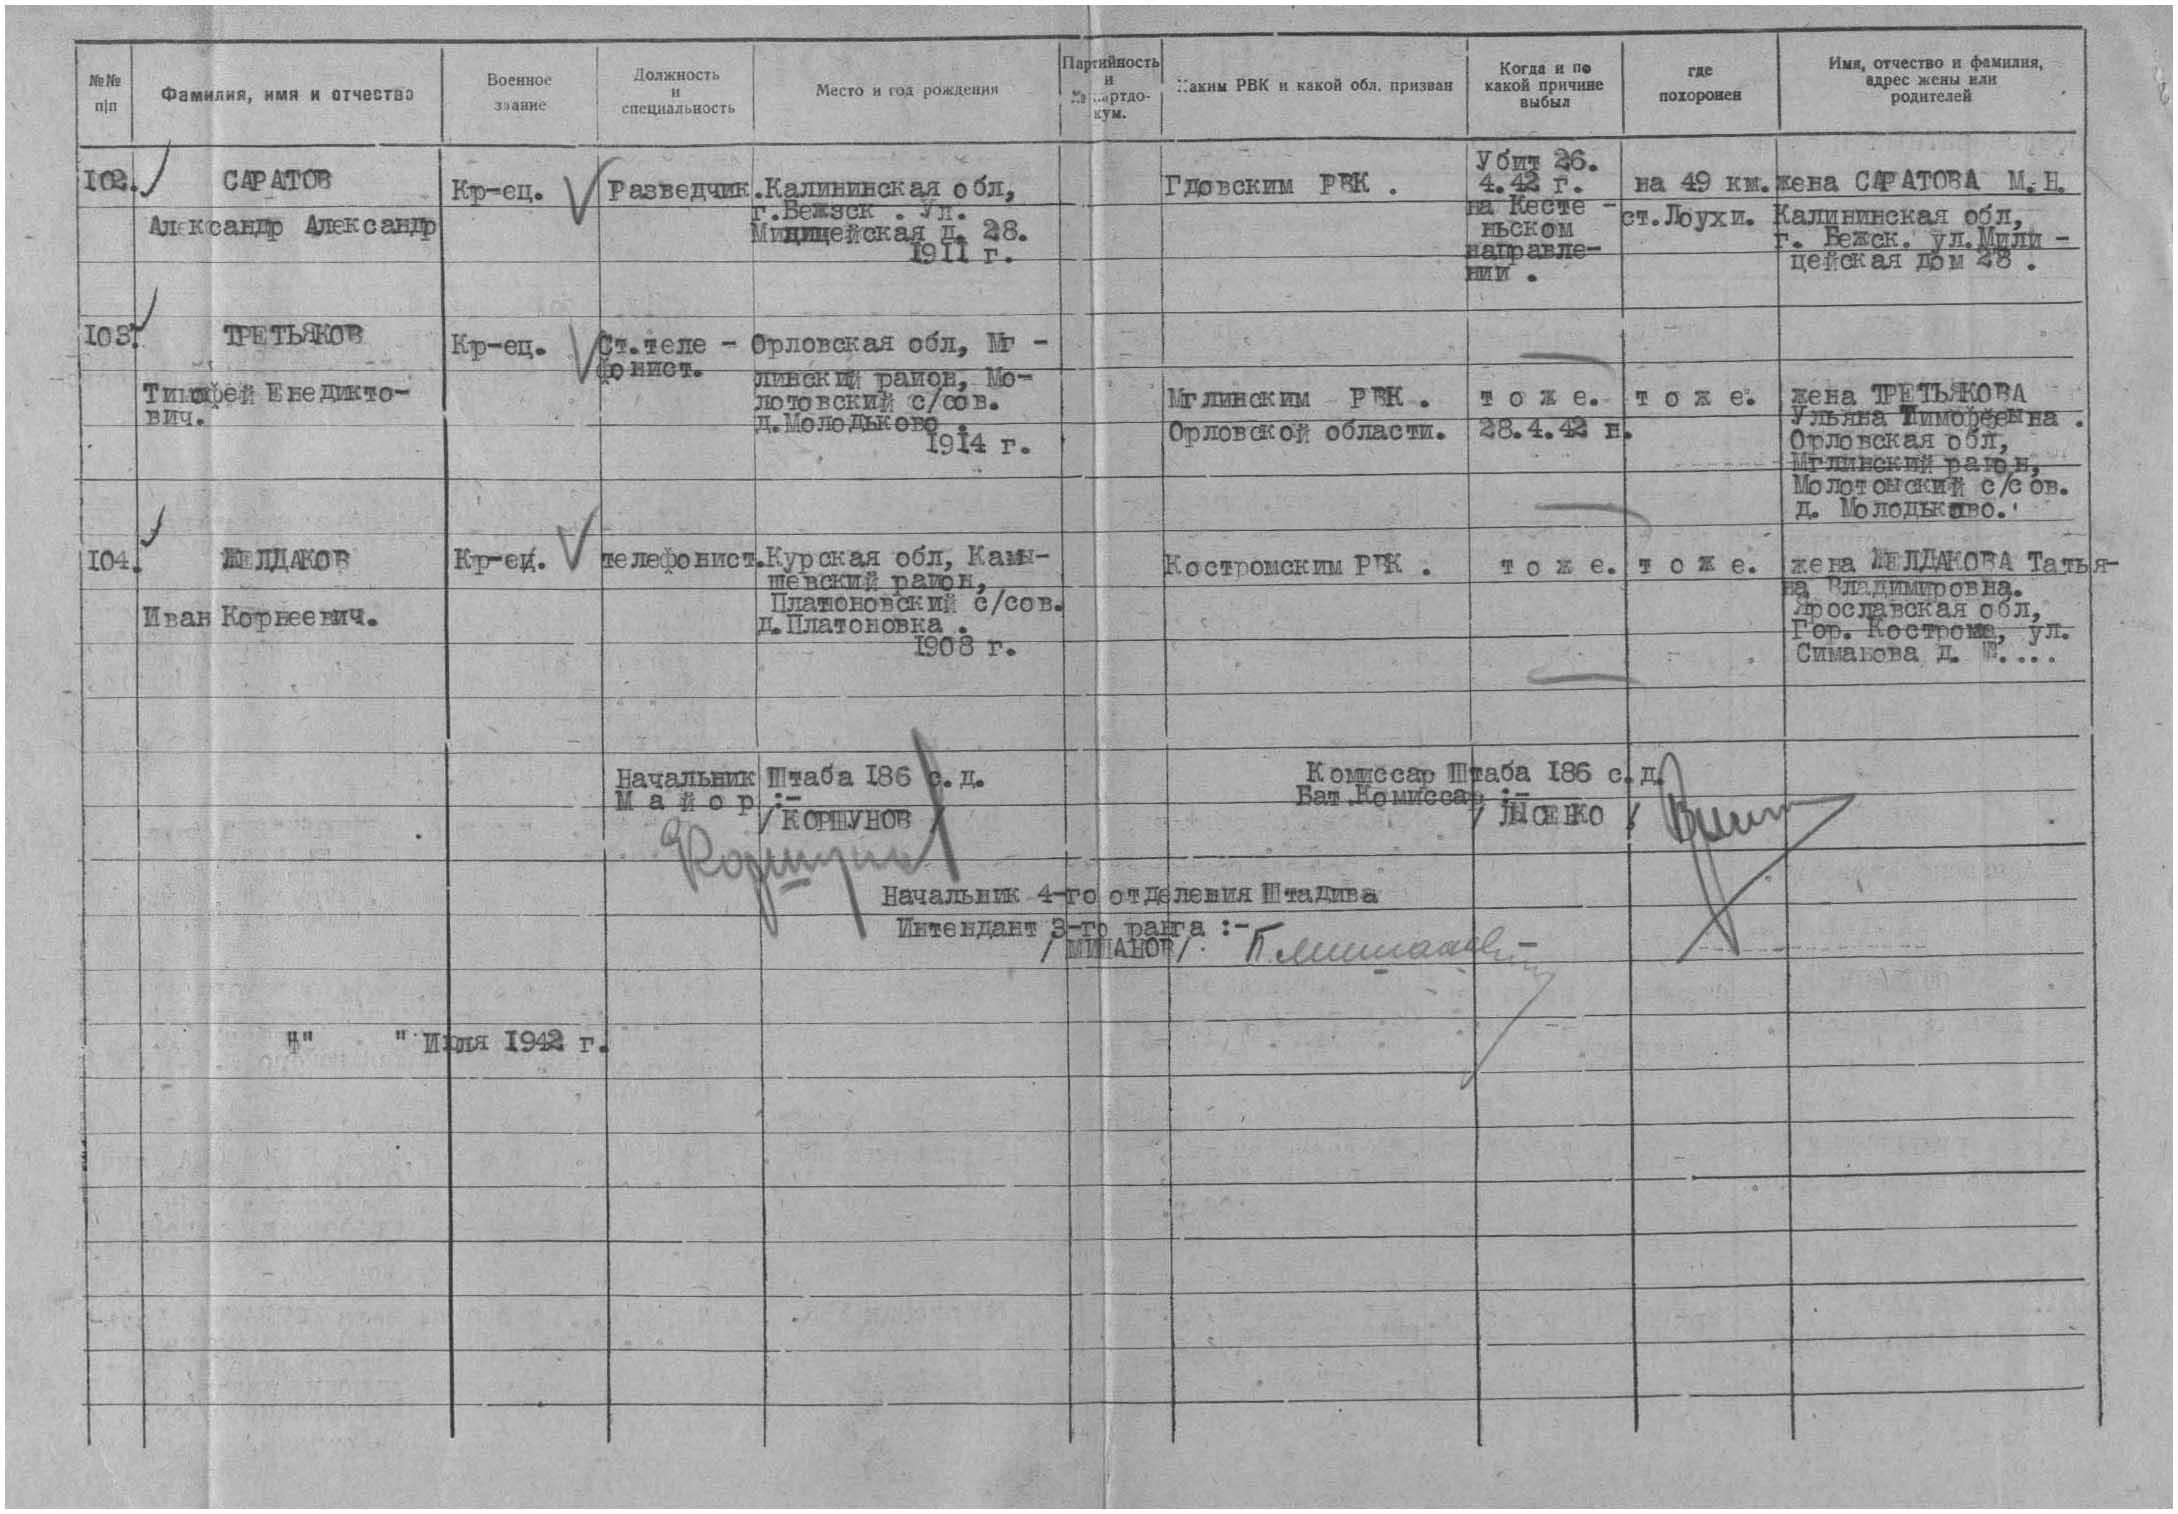 №№ п/п
Фамилия, имя и отчество
Военное звание
Должность и специальность
Место и год рождения
Партийность и
кум.
Каким РВК и какой обл. призван
Когда и по какой причине выбыл
где похоронен
Имя, отчество и фамилия, адрес жены или родителей
102.
САРАТОВ
Александр Александр
Кр-ец.
Разведчик.
Калининская обл,
г.Бежзск . Ул.
Милицейская д. 28.
1911 г.
Гдовским РВК .
Убит 26.
4.42 г.
на Кесте -
ньском
направле-
нии .
на 49 км.
ст.Лоухи.
жена САРАТОВА М.Н.
Калининская обл,
г. Бежск. ул.Мили -
цейская дом 28 .
103.
ТРЕТЬЯКОВ
Тимофей Енедикто-
вич.
Кр-ец.
Ст.теле -
фонист.
Орловская обл, Мг -
линский район, Мо-
лотовский с/сов.
д.Молодьково .
1914 г.
Мглинским РВК .
Орловской области.
т о ж е.
28.4.42 н.
т о ж е.
жена ТРЕТЬЯКОВА
Ульяна Тимофеевна .
Орловская обл,
Мглинский район,
Молотонский с/сов.
д. Молодьково.
104.
ЖЕЛДАКОВ
Иван Корнеевич.
Кр-ец.
телефонист.
Курская обл, Камы-
шевский район,
Платоновский с/сов.
д.Платоновка .
1908 г.
Костромским РВК .
т о ж е.
т о ж е.
жена ЖЕЛДАКОВА Татья-
на Владимировна.
Ярославская обл,
Гор. Кострома, ул.
Симанова д. №....
Начальник Штаба 186 с.д.
М а й о р :-
/ КОРШУНОВ /
Комиссар Штаба 186 с.д.
Бат.Комиссар :-
/ ЛЫСЕНКО /
Начальник 4-го отделения Штадива
Интендант 3-го ранга :-
/ МИНАНОВ/.
" " Июля 1942 г.